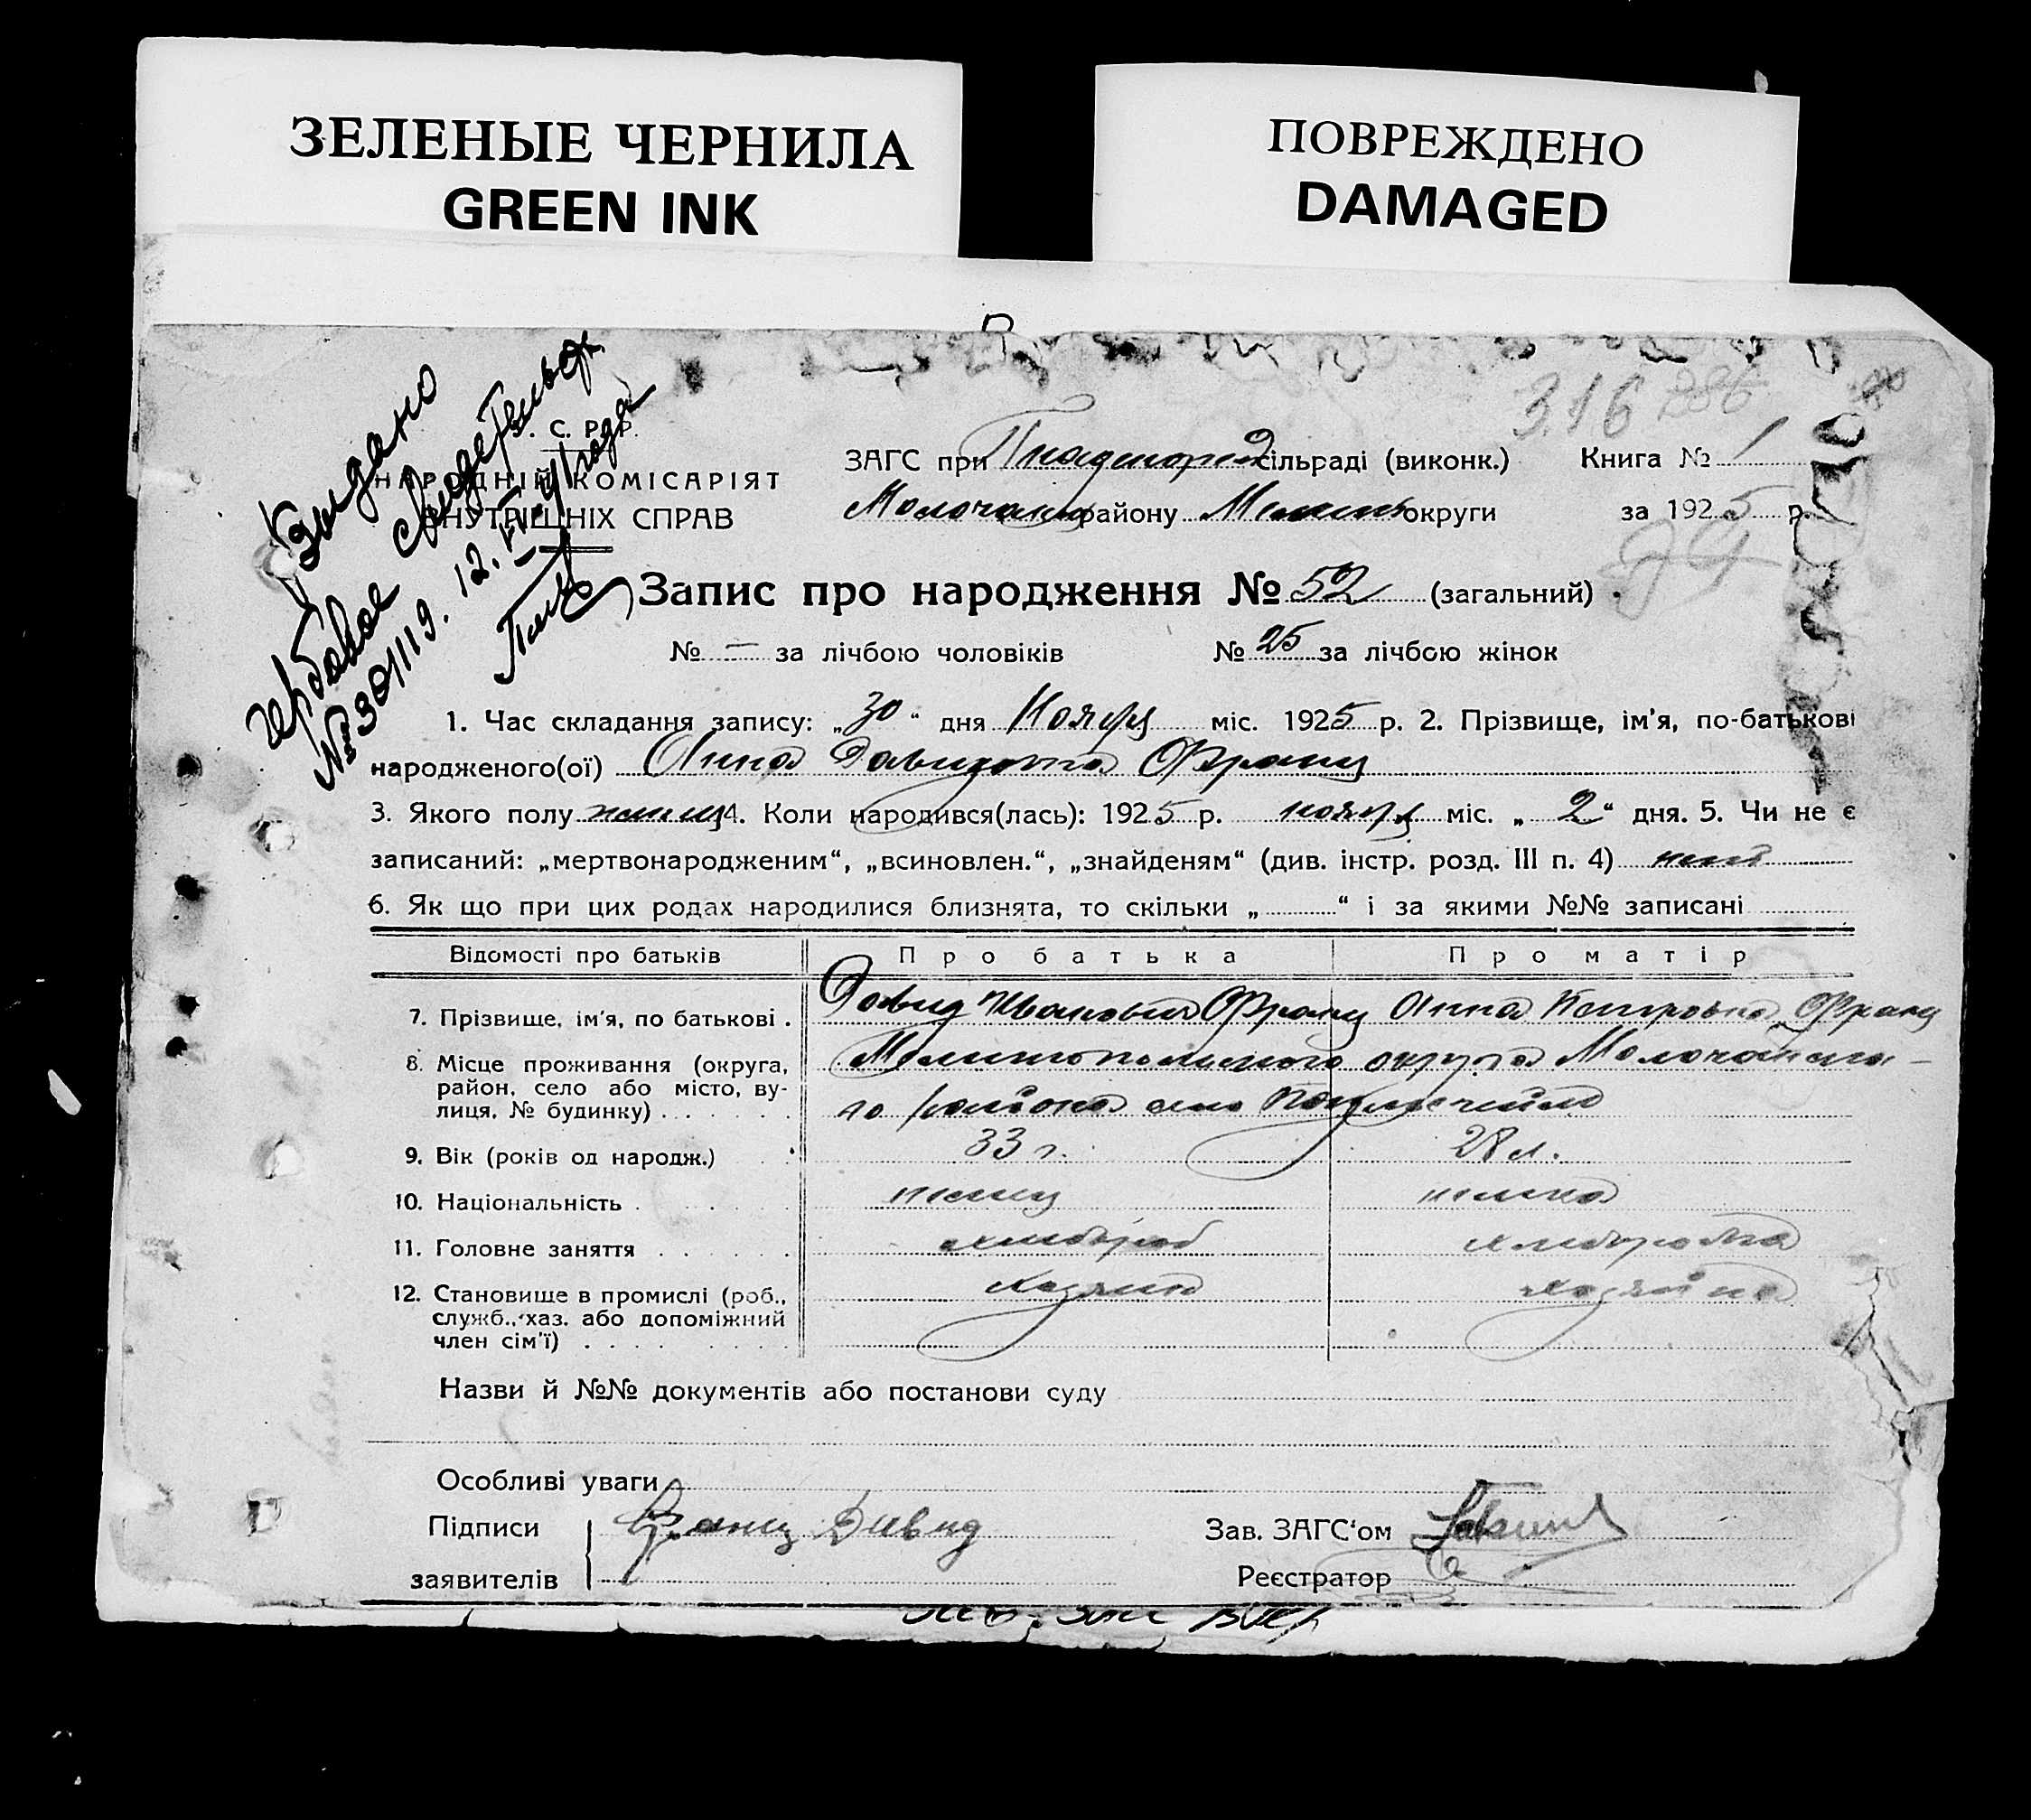 ЗЕЛЕНЫЕ ЧЕРНИЛА
GREEN INK
ПОВРЕЖДЕНО
DAMAGED
316 286
Выдано
гербовое свидетельст
№ 301119. 12. VII-41 года
. С. Р. Р.
НАРОДНІЙ КОМІСАРІЯТ
ВНУТРІШНІХ СПРАВ
ЗАГС при сільраді (виконк.) Книга № 1
Молочанск району Мелит округи за 1925 р.
Запис про народження № 52 (загальний)
№ — за лічбою чоловіків № 25 за лічбою жінок
1. Час складання запису: „30“ дня Ноября міс. 1925 р. 2. Прізвище, ім'я, по-батькові
народженого(ої) Анна Давидовна Франц
3. Якого полу женщ 4. Коли народився(лась): 1925 р. ноября міс. „2“ дня. 5. Чи не є
записаний: „мертвонародженим“, „всиновлен.“, „знайденям“ (див. інстр. розд. III п. 4) нет
6. Як що при цих родах народилися близнята, то скільки „ “ і за якими №№ записані
Відомості про батьків Про батька Про матір
7. Прізвище, ім'я, по батькові . Давид Иванович Франц Анна Петровна Франц
8. Місце проживання (округа, район, село або місто, вулиця, № будинку) . . . . . Мелитопольского округа Молочанско-
го района село
9. Вік (років од народж.) 33 г. 28 л.
10. Національність . немец немка
11. Головне заняття . . . . . хлебороб хлеборобка
12. Становище в промислі (роб., служб., хаз. або допоміжний член сім'ї) . . . . хозяин хозяйка
Назви й №№ документів або постанови суду
Особливі уваги
Підписи Франц Давид Зав. ЗАГС‘ом
заявителів Реєстратор